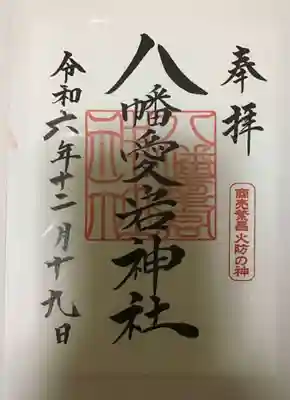 奉拝
商売繁昌 火防の神
八幡愛宕神社
令和六年十二月十九日